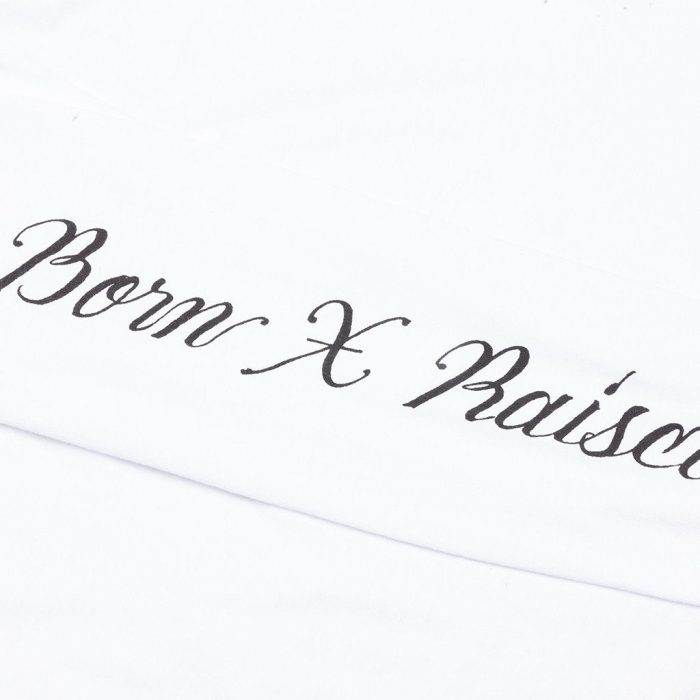 Born X Raise